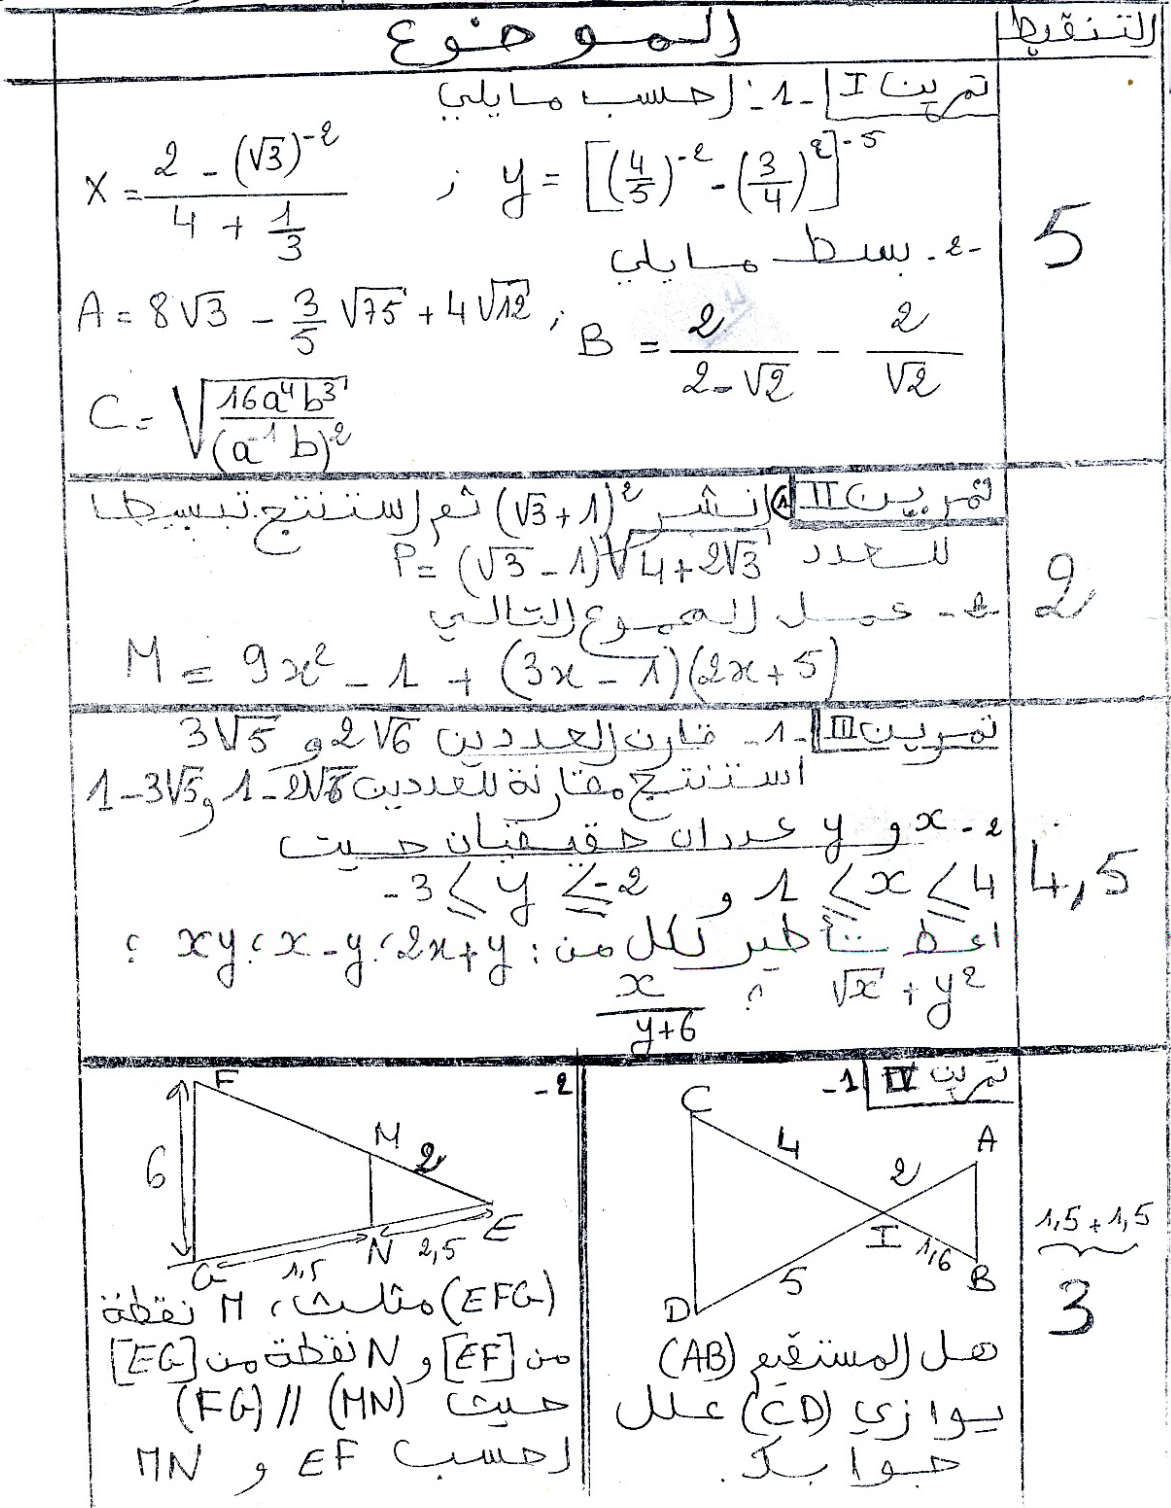 الموضوع
التنقيط
تمرين I -1- احسب مايلي
X = \frac{2 - (\sqrt{3})^{-2}}{4 + \frac{1}{3}} ; y = [(\frac{4}{5})^{-2} - (\frac{3}{4})^2]^{-5}
5
-2- بسط مايلي
A = 8\sqrt{3} - \frac{3}{5}\sqrt{75} + 4\sqrt{12} ; B = \frac{2}{2-\sqrt{2}} - \frac{2}{\sqrt{2}}
C = \sqrt{\frac{16a^4b^3}{(a^{-1}b)^2}}
تمرين II ① انشر (\sqrt{3}+1)^2 ثم استنتج تبسيطا
للعدد P = (\sqrt{3}-1)\sqrt{4+2\sqrt{3}}
2
-2- عمل المجموع التالي
M = 9x^2 - 1 + (3x-1)(2x+5)
تمرين III -1- قارن العددين 2\sqrt{6} و 3\sqrt{5}
استنتج مقارنة للعددين 1-2\sqrt{6} و 1-3\sqrt{5}
2- x و y عددان حقيقيان حيت
1 ≤ x ≤ 4 و -3 ≤ y ≤ -2
4,5
اعط تأطير لكل من : 2x+y ؛ x-y ؛ xy ؛
\sqrt{x} + y^2 ؛ \frac{x}{y+6}
تمرين IV 1-
C
A
4
2
I
1,6
5
B
D
هل المستقيم (AB)
يوازي (CD) علل
جوابك.
2-
F
M
2
6
E
N
2,5
G
1,5
(EFG) مثلث، M نقطة
من [EF] و N نقطة من [EG]
حيث (MN) // (FG)
احسب EF و MN
1,5 + 1,5
3